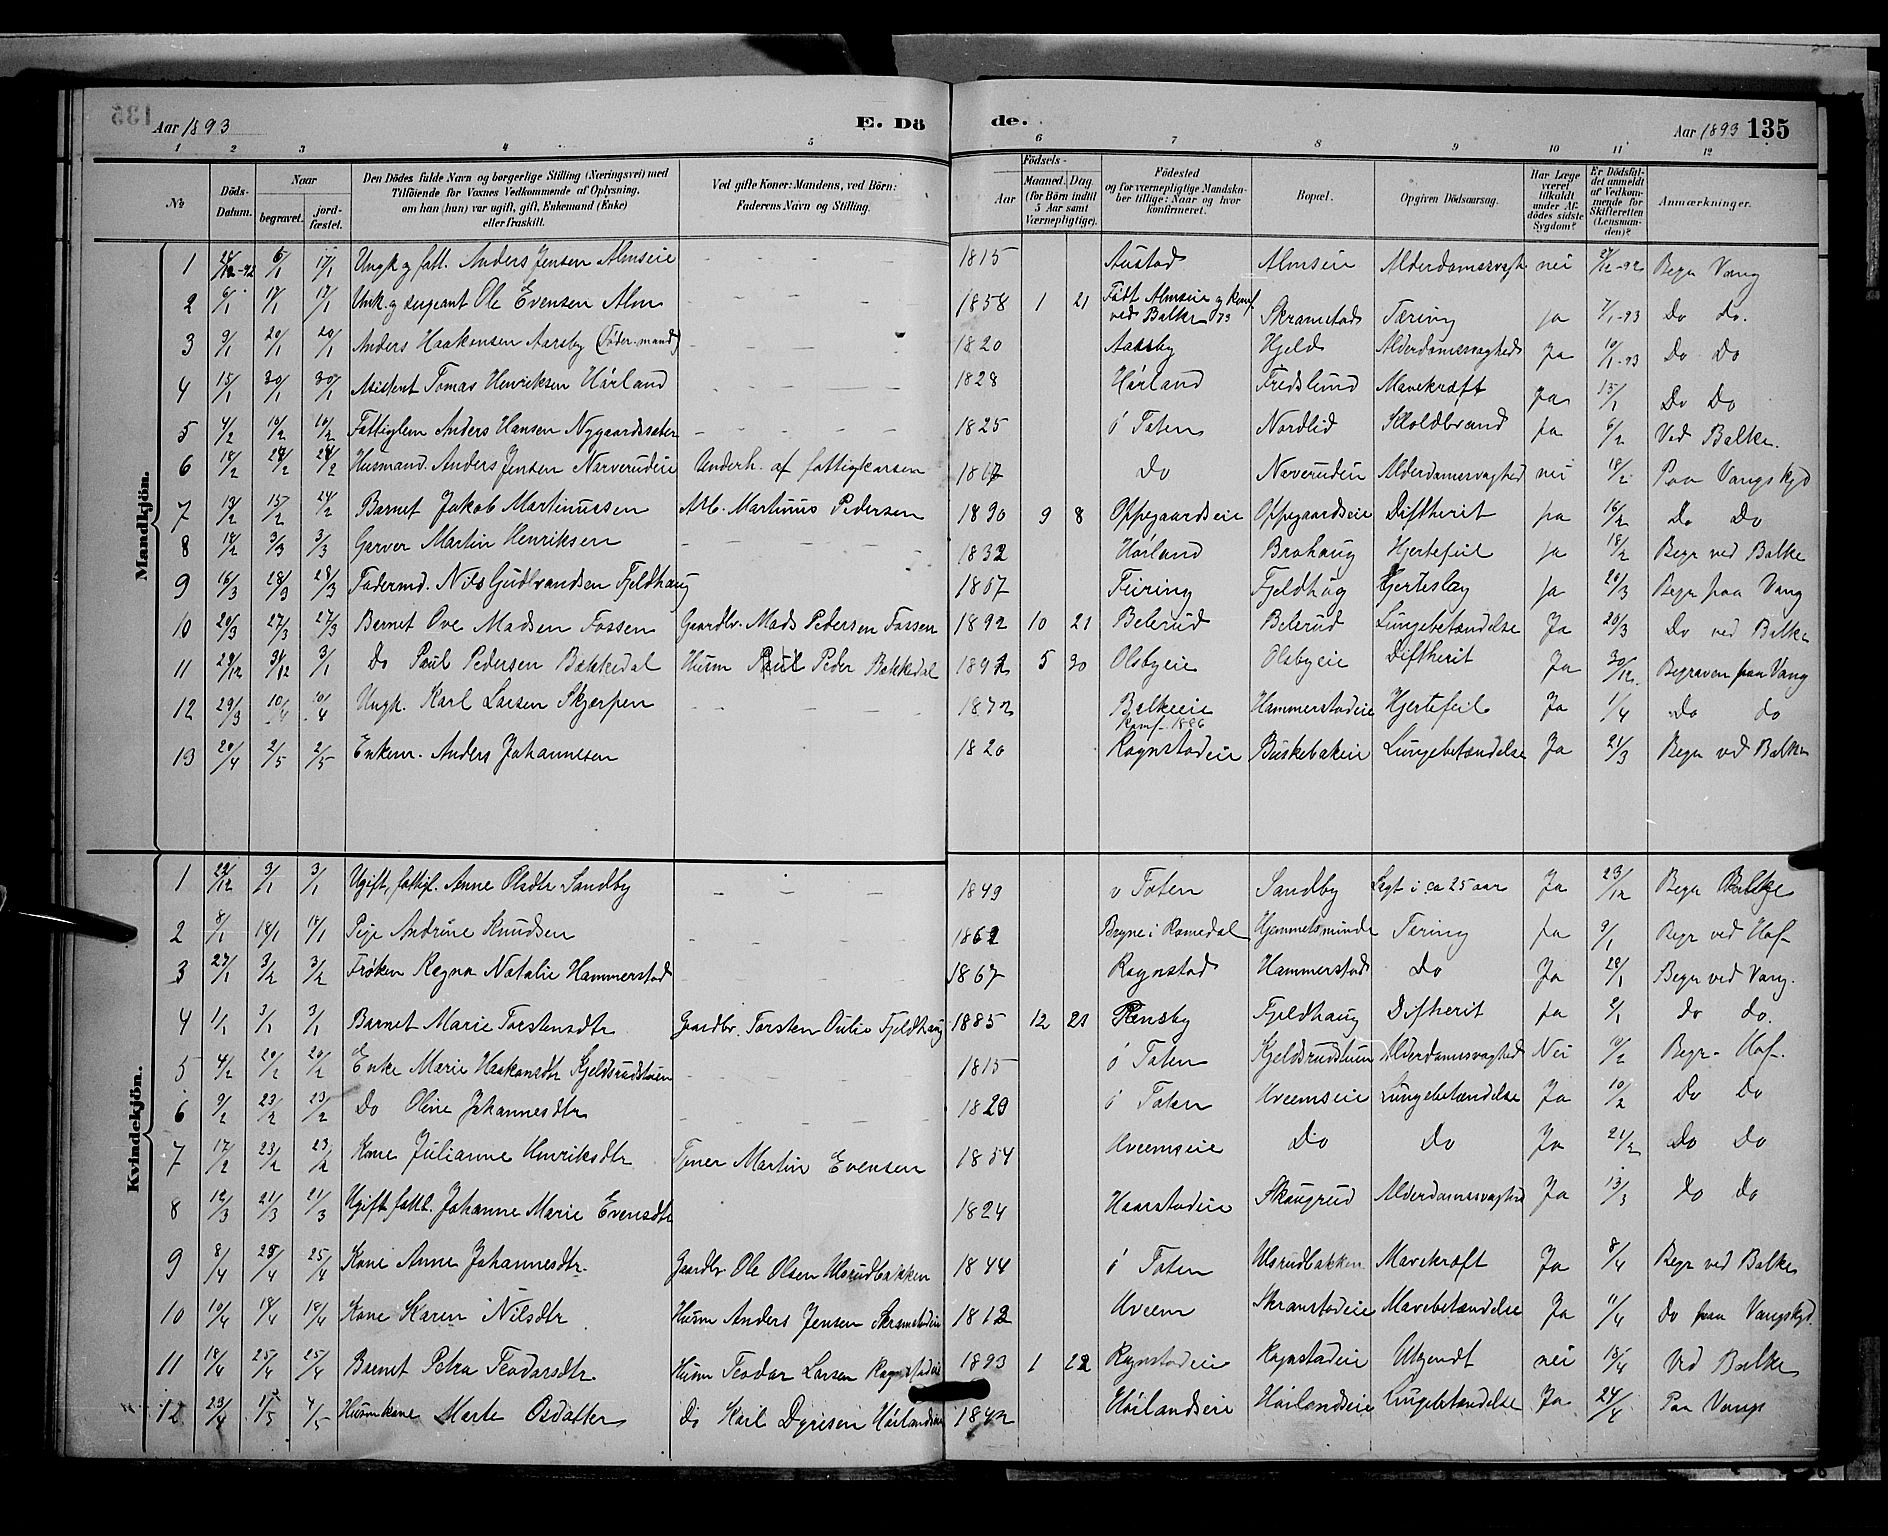 135
Aar 1893
E. Dö
de.
Aar 1893 135
1 2 3 4 5 6 7 8 9 10 11 12
No
Döds-Datum.
Naar
begravet.
jord-fæstet.
Den Dödes fulde Navn og borgerlige Stilling (Næringsvei) med
Tilföiende for Voxnes Vedkommende af Oplysning,
om han (hun) var ugift, gift, Enkemand (Enke)
eller fraskilt.
Ved gifte Koner: Mandens, ved Börn:
Faderens Navn og Stilling.
Födsels-
Aar
Maaned. Dag.
(for Börn indtil
5 Aar samt
Værnepligtige).
Födested
og for værnepligtige Mandskaber tillige: Naar og hvor
konfirmeret.
Bopæl.
Opgiven Dödsaarsag.
Har Læge
været
tilkaldt
under Afdödes sidste
Sygdom?
Er Dödsfaldet anmeldt
af Vedkommende for
Skifteretten
(Lensmanden)?
Anmærkninger.
Mandkjön.
1 6/1 17/1 Ungk og fatt. Anders Jensen Almseie 1815 Austad Almseie Alderdomssvagh nei 27/12-92 Begr Vang
2 6/1 17/1 17/1 Unk. og sergeant Ole Evensen Alm 1858 1 21 Født Almseie og konf. ved Balke 73 Skramstad Tæring ja 7/1-93 Do do.
3 9/1 20/1 20/1 Anders Haakensen Aarsby (Føder.mand) 1820 Aarsby Hjeld Alderdomssvaghed Ja 10/1-93 Do Do
4 15/1 30/1 30/1 Asistent Tomas Henriksen Hørland 1828 Hørland Fredslund Mavekræft Ja 15/1 Do Do
5 4/2 10/2 10/2 Fattiglem Anders Hansen Nygaardssæter 1825 ö Toten Nordlid Skoldbrand ja 6/2 Ved Balke.
6 18/2 24/2 24/2 Husmand. Anders Jensen Narverudeie Underh. af fattigkassen 1817 Do Næverudeie Alderdomssvaghed nei 18/2 Paa Vangskgd
7 13/2 15/2 24/2 Barnet Jakob Martinussen Arb. Martinus Pedersen 1890 9 8 Oppegaardseie Oppegaardseie Diftherit ja 16/2 Do Do
8 18/2 3/3 3/3 Garver Martin Henriksen 1832 Hørland Brohaug Hjertefeil ja 18/2 Begr ved Balke
9 16/3 28/3 28/3 Fødermd. Nils Gudbrandsen Fjeldhaug 1807 Feiring Fjeldhag Hjerteslag ja 20/3 Begr paa Vang
10 20/3 27/3 27/3 Barnet Ove Madsen Fossen Gaardbr. Mads Pedersen Fossen 1892 10 21 Belerud Belerud Lungebetændelse Ja 20/3 Do ved Balke
11 29/12 31/12 3/1 Do Paul Pedersen Bækkedal Husm Peder Bækkedal 1892 5 30 Olsbyeie Olsbyeie Diftherit Ja 30/12 Begraven paa Vang
12 29/3 10/4 10/4 Ungk. Karl Larsen Skjerpen 1872 Balkeeie konf. 1886 Hammerstadeie Hjertefeil Ja 1/4 do do
13 20/4 2/5 2/5 Enkem. Anders Johannesen 1820 Rognstadeie Buskebakeie Lungebetændelse Ja 21/3 Begr ved Balke
Kvindekjön.
1 22/12 3/1 3/1 Ugift, fattigl. Anne Olsdtr Sandby 1849 v Toten Sandby Ligt i ca 25 aar Ja 23/12 Begr Balke
2 8/1 18/1 18/1 Pige Andrine Knudsen 1862 Bryne i Romedal Hjemmetsminde Tering ja 9/1 Begr ved Hof-
3 27/1 3/2 3/2 Frøken Regna Natalie Hammerstad 1867 Rognstad Hammerstad Do Ja 28/1 Begr ved Vang.
4 1/1 3/1 3/1 Barnet Marie Torstensdtr Gaardbr. Torsten Fjeldhaug 1885 12 21 Rensby Fjeldhaug Diftherit ja 2/1 do do.
5 4/2 20/2 20/2 Enke Marie Haakonsdtr Kjeldsrudstuen 1815 ö Toten Kjeldsrudstuen Alderdomssvaghed Nei 10/2 Begr. Hof.
6 9/2 23/2 23/2 Do Oline Johannesdtr 1820 ö Toten Hveemseie Lungebetændelse Ja 10/2 Do Do
7 17/2 23/2 23/2 Kone Julianne Henriksdtr Martin Evensen 1854 Hveemseie Do Do Ja 21/2 Do Do
8 12/3 21/3 21/3 Ugift fattl. Johanne Marie Evensdtr 1824 Haarstadeie Skaugrud Alderdomssvaghed Ja 13/3 Do Do
9 8/4 25/4 25/4 Kone Anne Johannesdtr. Gaardbr Ole Olsen Ulsrudbakken 1844 ö Toten Ulsrudbakken Mavekræft Ja 8/4 Begr ved Balke
10 10/4 18/4 18/4 Kone Karen Nilsdtr Husm Anders Jensen Skramstadeie 1812 Hveem Skramstadeie Mavebetændelse Ja 11/4 Do paa Vangskgd.
11 18/4 25/4 25/4 Barnet Petra Teodorsdtr. Husm Teodor Larsen Rognstadeie 1893 1 22 Rognstadeie Rognstadeie Ukjendt nei 18/4 Ved Balke
12 23/4 Husmkone Marte Osdatter Do Karl Dyresen Høilandseie 1842 Høilandseie Høilandseie Lungebetændelse Ja 24/4 Paa Vangs